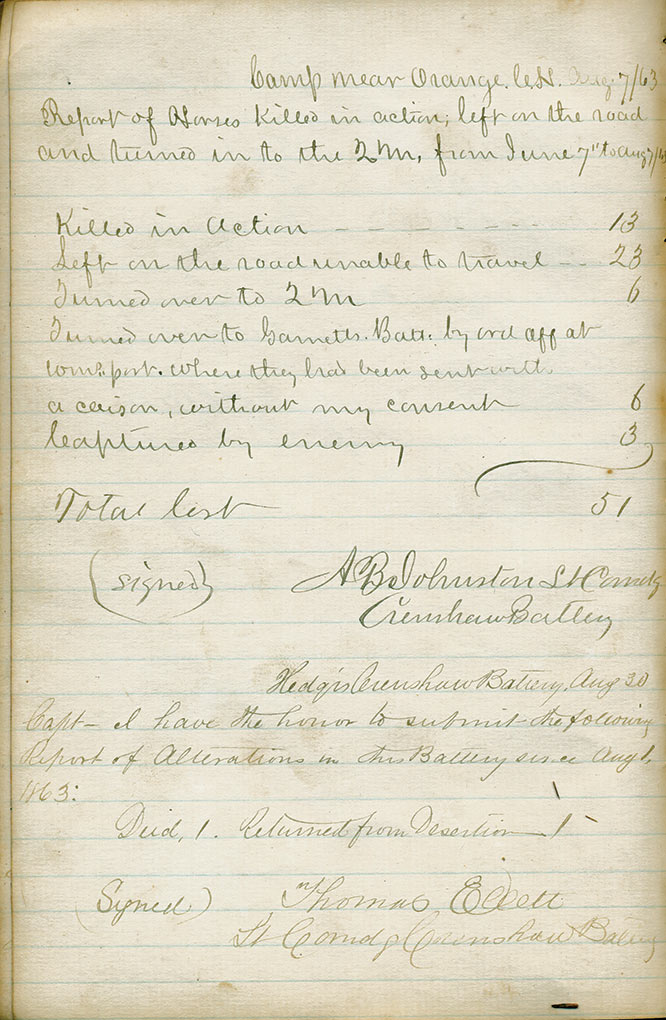 Camp near Orange. C.H. Aug. 7/63
Report of Horses Killed in action, left on the road
and turned in to the 2 M, from June 7" to Aug 7/63
Killed in Action - - - - - - - 13
Left on the road unable to travel - - - 23
Turned over to 2'M 6
Turned over to Garnetts. Batt: by ord off at
Wmsport. where they had been sent with
a caison, without my consent 6
Captured by enemy 3
Total lost 51
(signed) A B Johnston Lt Comdg
Crenshaw Battery
Hedqrs Crenshaw Battery, Aug 30
Capt - I have the honor to submit the following
Report of Alterations in this Battery since Aug 1,
1863:
Died, 1. Returned from Desertion 1 -
(Signed) Thomas Ellett
Lt Comdg Crenshaw Battery